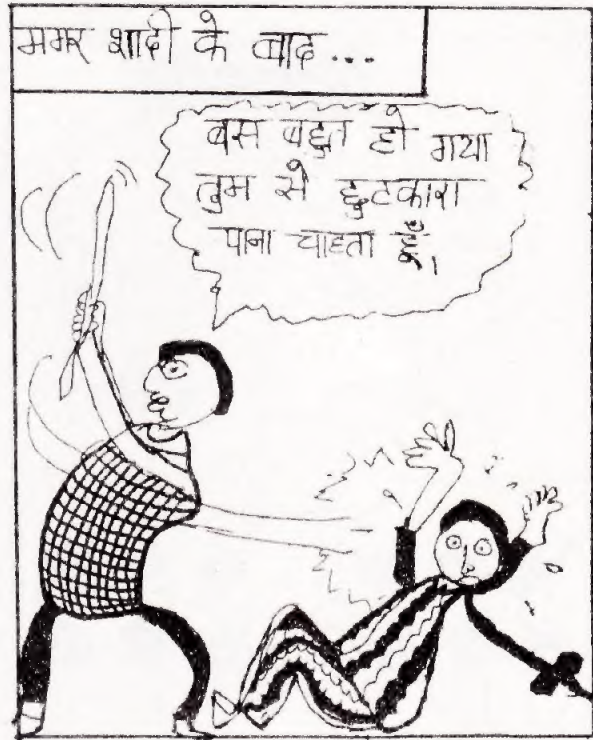 मगर शादी के बाद ...
बस बहुत हो गया
तुम से छुटकारा
पाना चाहता हूँ।